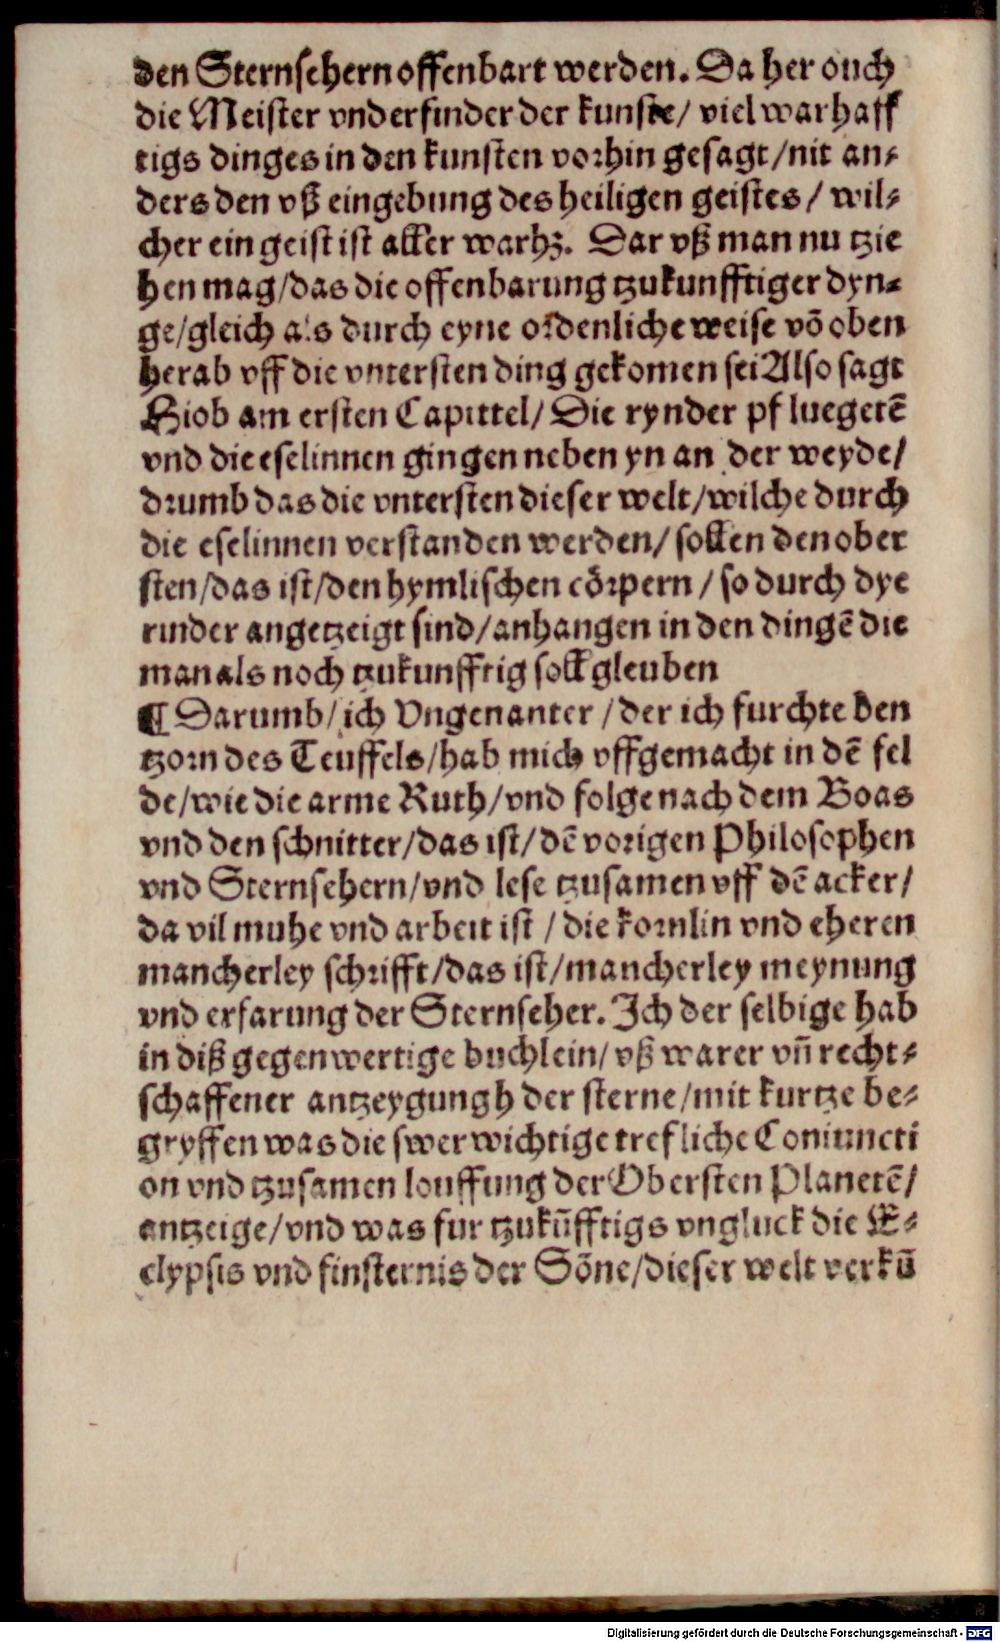 den Sternsehern offenbart werden. Da her ouch
die Meister vnd erfinder der kunste/ viel warhaff
tigs dinges in den kunsten vorhin gesagt/nit an⸗
ders den vß eingebung des heiligen geistes/ wil⸗
cher ein geist ist aller warhꝫ. Dar vß man nu tzie
hen mag/das die offenbarung tzukunfftiger dyn⸗
ge/gleich als durch eyne ordenliche weise võ oben
herab vff die vntersten ding gekomen sei Also sagt
Hiob am ersten Capittel/ Die rynder pfluegetẽ
vnd die eselinnen gingen neben yn an der weyde/
drumb das die vntersten dieser welt/wilche durch
die eselinnen verstanden werden/ sollen den ober
sten/das ist/den hymlischen cörpern/ so durch dye
rinder angetzeigt sind/anhangen in den dingẽ die
man als noch tzukunfftig soll gleuben
¶ Darumb/ich Vngenanter/der ich furchte den
tzorn des Teuffels/hab mich vffgemacht in dẽ fel
de/wie die arme Ruth/vnd folge nach dem Boas
vnd den schnitter/das ist/dẽ vorigen Philosophen
vnd Sternsehern/vnd lese tzusamen vff dẽ acker/
da vil muhe vnd arbeit ist/die kornlin vnd eheren
mancherley schrifft/das ist/mancherley meynung
vnd erfarung der Sternseher. Ich der selbige hab
in diß gegenwertige buchlein/vß warer vñ recht⸗
schaffener antzeygungh der sterne/mit kurtze be⸗
gryffen was die swerwichtige trefliche Coniuncti
on vnd tzusamen louffung der Obersten Planetẽ/
antzeige/vnd was fur tzukũfftigs vngluck die E⸗
clypsis vnd finsternis der Sõne/dieser welt verkũ
Digitalisierung gefördert durch die Deutsche Forschungsgemeinschaft - DFG